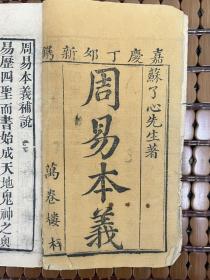 嘉慶丁夘新鐫
蘇了心先生著
周易本義
萬卷樓梓
周易本義補說
易歷四聖而書始成天地鬼神之奧